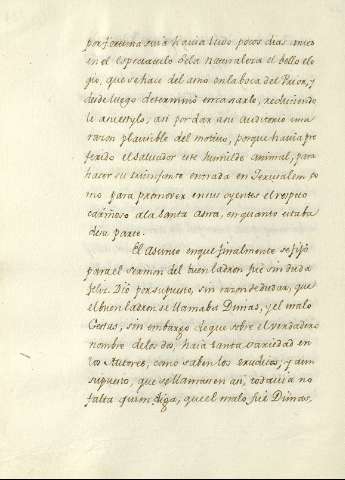 por fortuna suia havia leido pocos dias antes
en el espectaculo de la naturaleza el bello elo
gio, que se hace del asno en la boca del Prior, y
desde luego determinó encajarlo, reduciendo
le a su estylo, asi por dar a su auditorio una
razon plausible del motivo, porque havia pre
ferido el Salvador este humilde animal, para
hacer su triunfante entrada en Jerusalem, co
mo para promover en sus oyentes el respeto
cariñoso a la santa asna, en quanto estaba
de su parte.
El Asunto en que finalmente se fijó
para el sermon del buen ladron fue sin duda
feliz. Dio por supuesto, sin razon de dudar, que
el buen ladron se llamaba Dimas, y el malo
Gestas, sin embargo de que sobre el verdadero
nombre de los dos, haia tanta variedad en
los Autores, como saben los eruditos; y aun
supuesto, que se llamasen asi, todavia no
falta quien diga, que el malo fue Dimas,